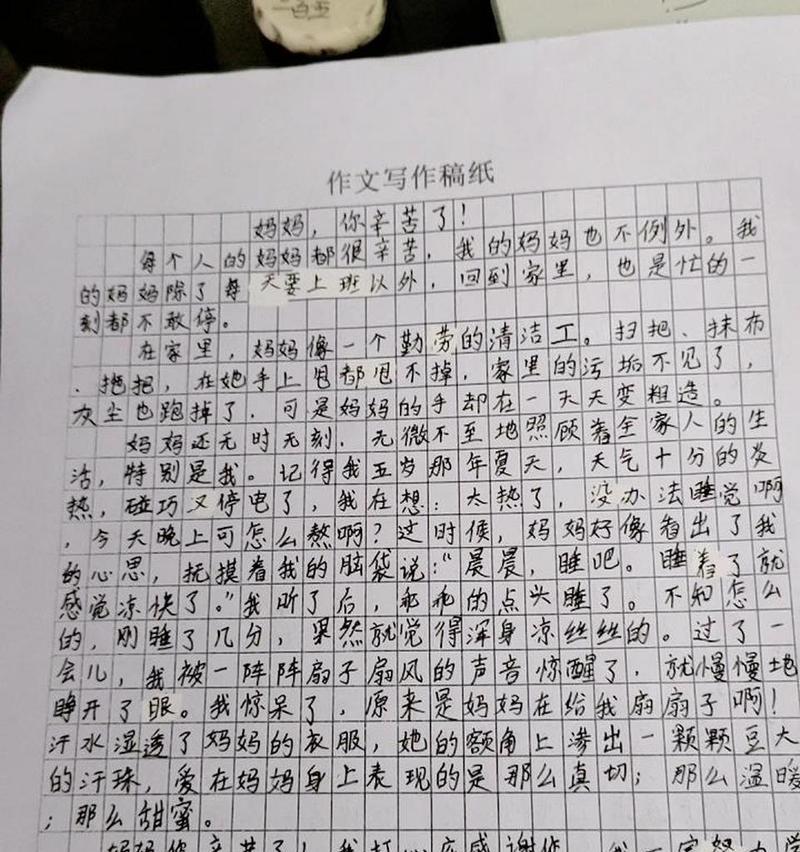 作文写作稿纸
妈妈，你辛苦了！
每个人的妈妈都很辛苦，我的妈妈也不例外。我
的妈妈除了每天要上班以外，回到家里，也是忙的一
刻都不敢停。
在家里，妈妈像一个勤劳的清洁工。扫把、抹布
、拖把，在她手上甩都甩不掉，家里的污垢不见了，
灰尘也跑掉了，可是妈妈的手却在一天天变粗造。
妈妈还无时无刻，无微不至地照顾着全家人的生
活，特别是我。记得我五岁那年夏天，天气十分的炎
热，碰巧又停电了，我在想：太热了，没办法睡觉啊
，今天晚上可怎么熬啊？过时候，妈妈好像看出了我
的心思，抚摸着我的脑袋说：“晨晨，睡吧。睡着了就
感觉凉快了。”我听了后，乖乖的点头睡了。不知怎么
的，刚睡了几分，果然就觉得浑身凉丝丝的。过了一
会儿，我被一阵阵扇子扇风的声音惊醒了，就慢慢地
睁开了眼。我惊呆了，原来是妈妈在给我扇扇子啊！
汗水湿透了妈妈的衣服，她的额角上渗出一颗颗豆大
的汗珠，爱在妈妈身上表现的是那么真切；那么温暖
；那么甜蜜。
妈妈你辛苦了！我打心底感谢你